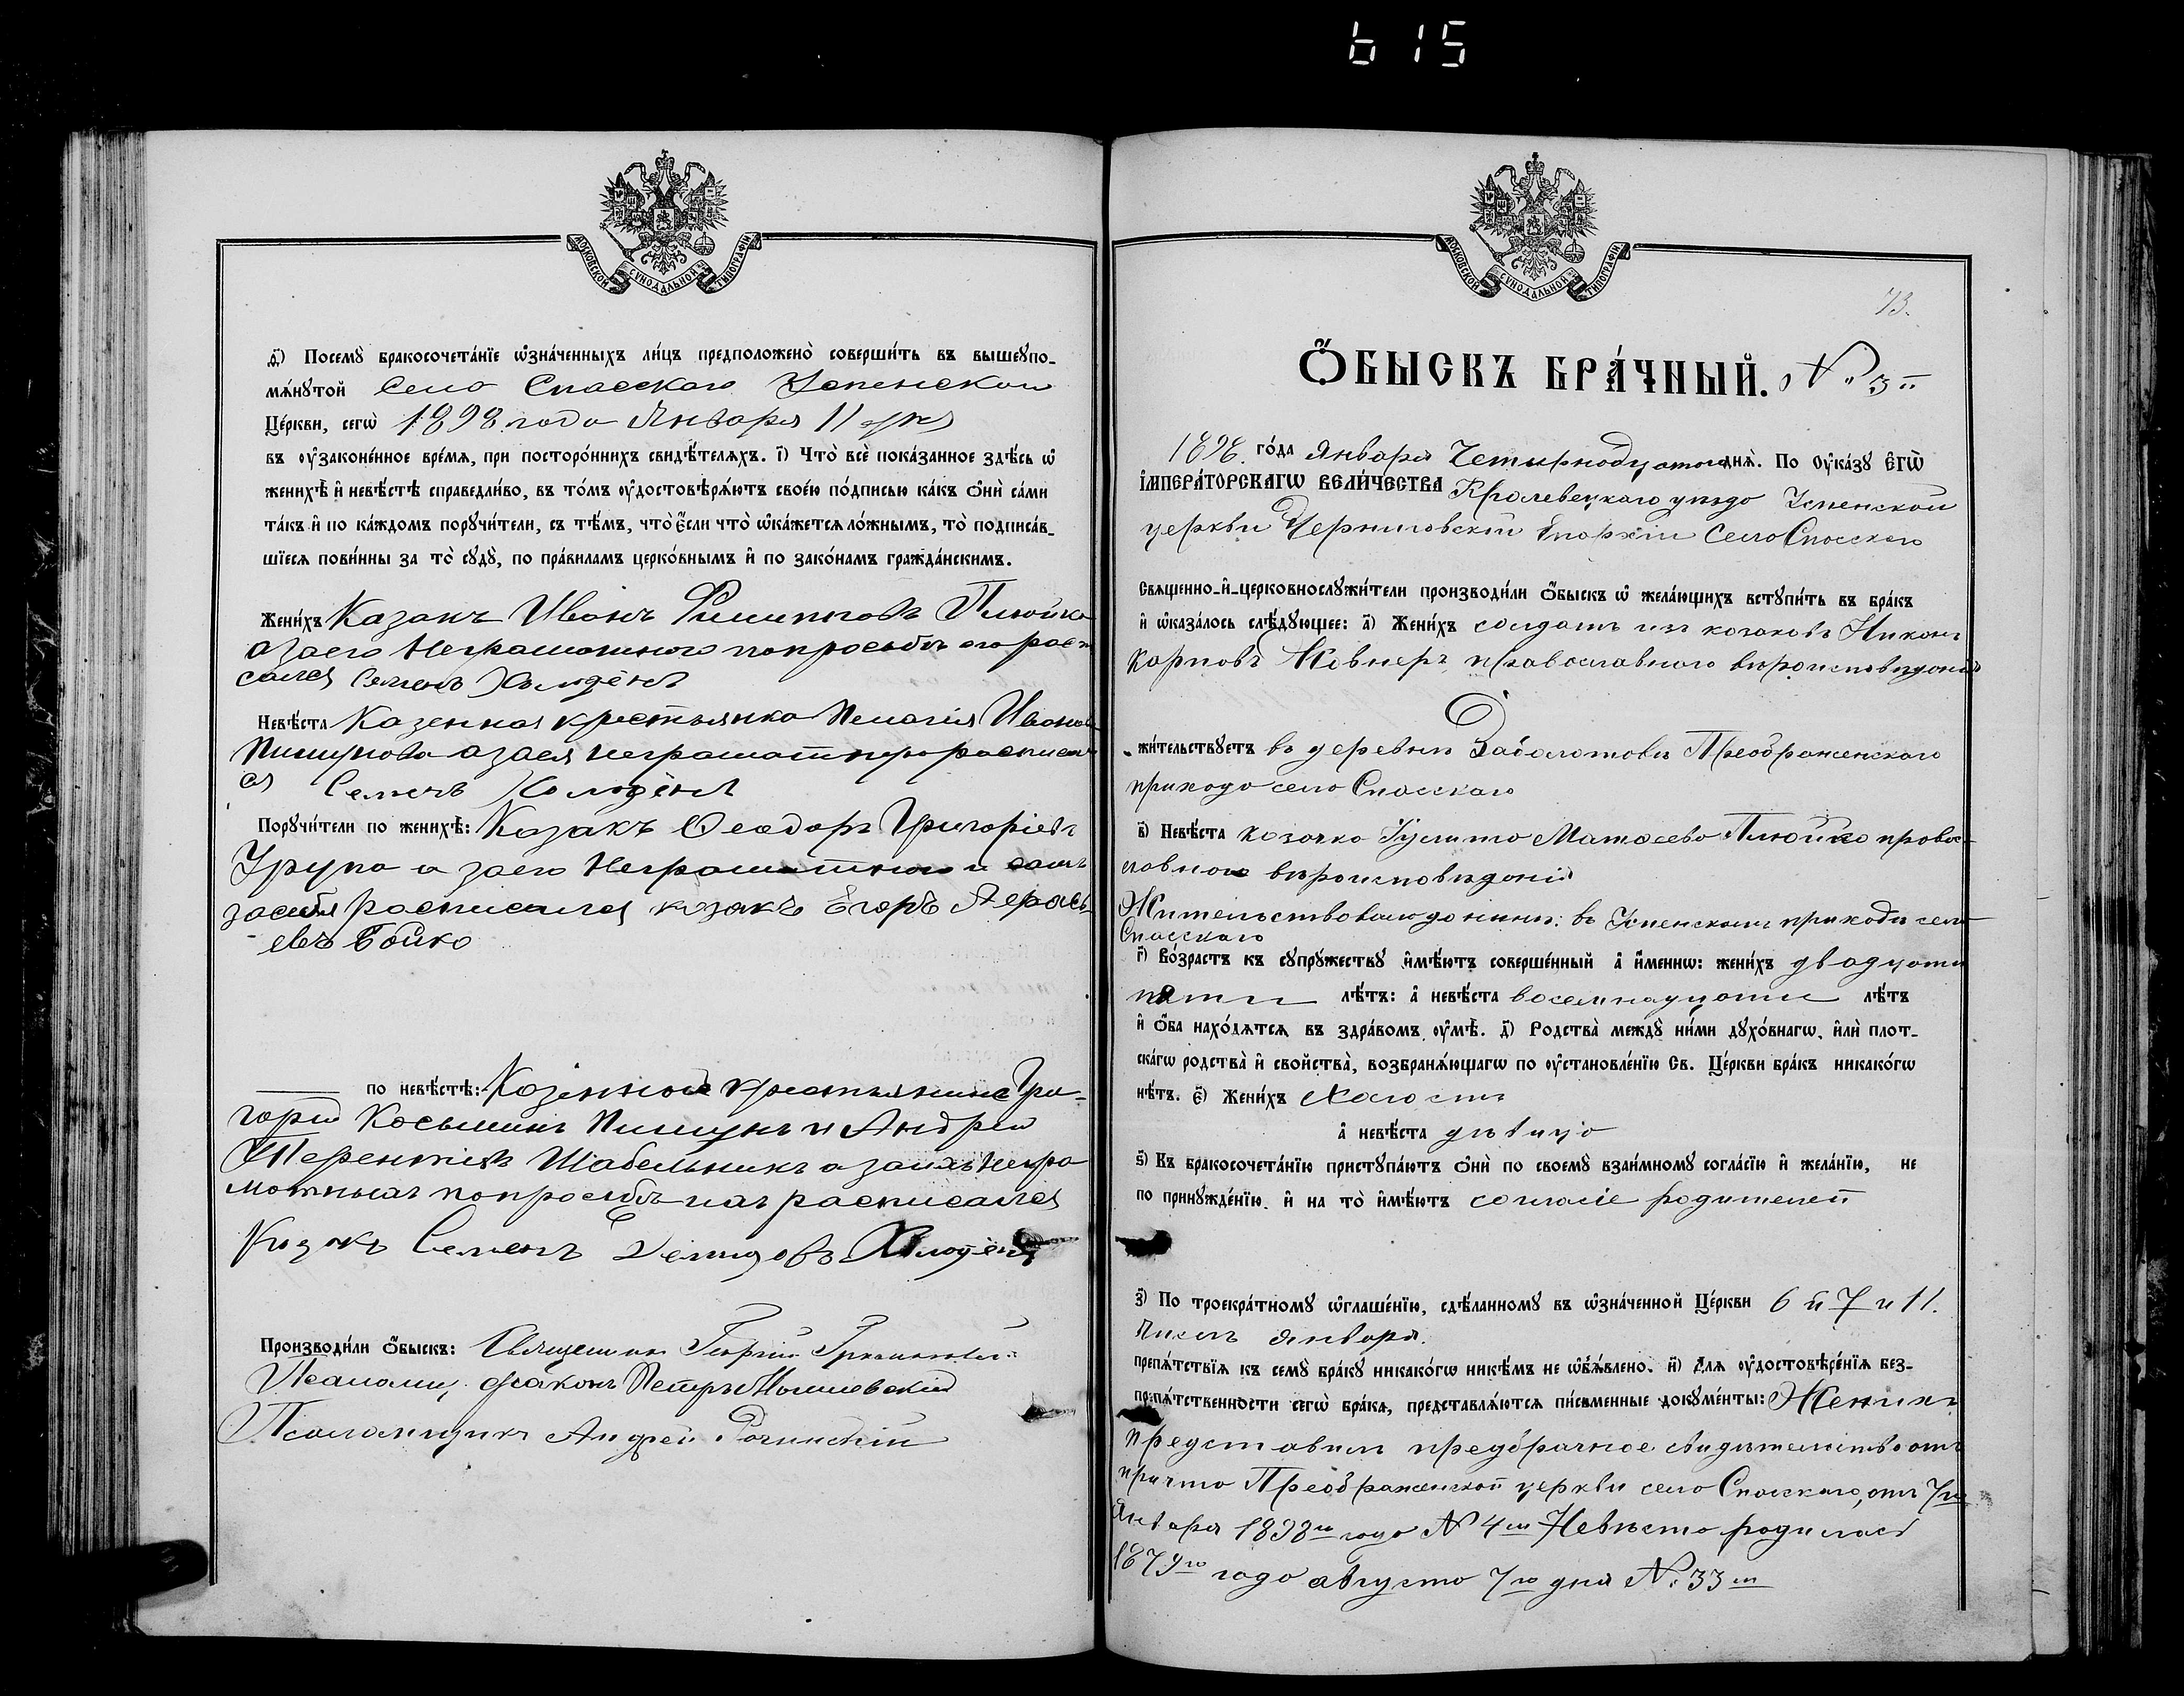 615
МОСКОВСКОЙ СѴНОДАЛЬНОЙ ТИПОГРАФІИ
ѳ҃) Посемꙋ̀ бракосочета́нїе ѡ҆зна́ченныхъ ли́цъ предположено̀ соверши́ть въ вышеꙋпо-
мѧ́нꙋтой Села Спасскаго Успенской
Це́ркви, сегѡ̀ 1898 года Января 11 дня
въ ᲂу҆законе́нное вре́мѧ, при посторо́ннихъ свидѣ́телѧхъ. і҃) Что̀ всѐ пока́занное здѣ́сь ѡ҆
женихѣ̀ и҆ невѣ́стѣ справедли́во, въ то́мъ ᲂу҆достовѣрѧ́ютъ свое́ю по́дписью ка́къ ѻ҆нѝ са́ми
та́къ и҆ по ка́ждомъ порꙋчи́тели, съ тѣ́мъ, что̀ є҆́сли что̀ ѡ҆ка́жетсѧ ло́жнымъ, то̀ подписа́в-
шїесѧ пови́нны за то̀ сꙋдꙋ̀, по пра́виламъ церко́внымъ и҆ по зако́намъ гражда́нскимъ.
Жени́хъ Казакъ Иванъ Филиповъ Плюйко
а за его Неграмотного по просьбѣ его распи
сался Семенъ
Невѣ́ста Казенная крестьянка Пелагія Иванова
Пищукова а за ея неграмат
ся Семенъ
Порꙋчи́тели по женихѣ̀: Казакъ Ѳеодоръ Григоріевъ
а за его Неграмотного и самъ
за себя расписался казакъ Егоръ
евъ Бойко
по невѣ́стѣ: Казенные крестьяне Гри-
горій Косьминъ Пищукъ и Андрей
Терентіевъ Шабельникъ а за ихъ Негра
мотныхъ по просьбѣ ихъ расписался
Казакъ Семенъ Демидовъ
Производи́ли Ѻ҆́быскъ: Священникъ Георгій
Псаломщ. діаконъ Петръ
Псаломщикъ Андрей
МОСКОВСКОЙ СѴНОДАЛЬНОЙ ТИПОГРАФІИ
73.
Ѻ҆́БЫСКЪ БРА́ЧНЫЙ. № 3й
1898 го́да Января Четырнадцатого днѧ̀. По ᲂу҆ка́зꙋ Є҆гѡ̀
І҆мпера́торскагѡ Вели́чества Кролевецкаго уѣзда Успенской
церкви Черниговской Епархіи Села Спасскаго
Свѧщенно-и҆-церковнослꙋжи́тели производи́ли ѻ҆́быскъ ѡ҆ жела́ющихъ встꙋпи́ть въ бра́къ
и҆ ѡ҆каза́лось слѣ́дꙋющее: а҃) Жени́хъ солдатъ изъ казаковъ Никонъ
Карповъ Ковнеръ православнаго вѣроисповѣданія
жи́тельствꙋетъ въ деревнѣ Заболотовѣ Преображенскаго
прихода села Спасскаго
в҃) Невѣ́ста козачка Іулита Матвѣева Плюйко правос-
лавного вѣроисповѣданія
Жительствовала до нынѣ: въ Успенскомъ приходѣ села
Спасскаго
г҃) Во́зрастъ къ сꙋпрꙋ́жествꙋ и҆мѣ́ютъ соверше́нный а҆ и҆́меннѡ: жени́хъ двадцати
пяти лѣ́тъ: а҆ невѣ́ста восемнадцати лѣ́тъ
и҆ ѻ҆́ба нахо́дѧтсѧ въ здра́вомъ ᲂу҆мѣ̀. д҃) Родства̀ междꙋ̀ ни́ми дꙋхо́внагѡ, и҆лѝ плот-
ска́гѡ родства̀ и҆ свойства̀, возбранѧ́ющагѡ по ᲂу҆становле́нїю Св. Це́ркви бра́къ никако́гѡ
нѣ́тъ. є҃) Жени́хъ холостъ
а҆ невѣ́ста дѣвица
ѕ҃) Къ бракосочета́нїю пристꙋпа́ютъ ѻ҆нѝ по своемꙋ̀ взаи́мномꙋ согла́сїю и҆ жела́нїю, не
по принꙋжде́нїю. и҆ на то̀ и҆мѣ́ютъ согласіе родителей
з҃) По троекра́тномꙋ ѡ҆глаше́нїю, сдѣ́ланномꙋ въ ѡ҆зна́ченной Це́ркви 6 и 7 и 11.
числъ января.
препѧ́тствїѧ къ семꙋ̀ бра́кꙋ никако́гѡ никѣ́мъ не ѡ҆б̾ѧ́влено. и҃) Длѧ ᲂу҆достовѣре́нїѧ без-
препѧ́тственности сегѡ̀ бра́ка, представлѧ́ютсѧ пи́сьменные докꙋме́нты: Женихъ
представилъ предбрачное свидѣтельство отъ
причта Преображенской церкви села Спасскаго, отъ 7го
Января 1898го года № 4й Невѣста родилась
1879го года августа 7го дня № 33й